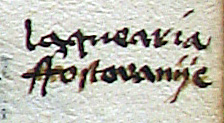 laquearia
ffostovanije